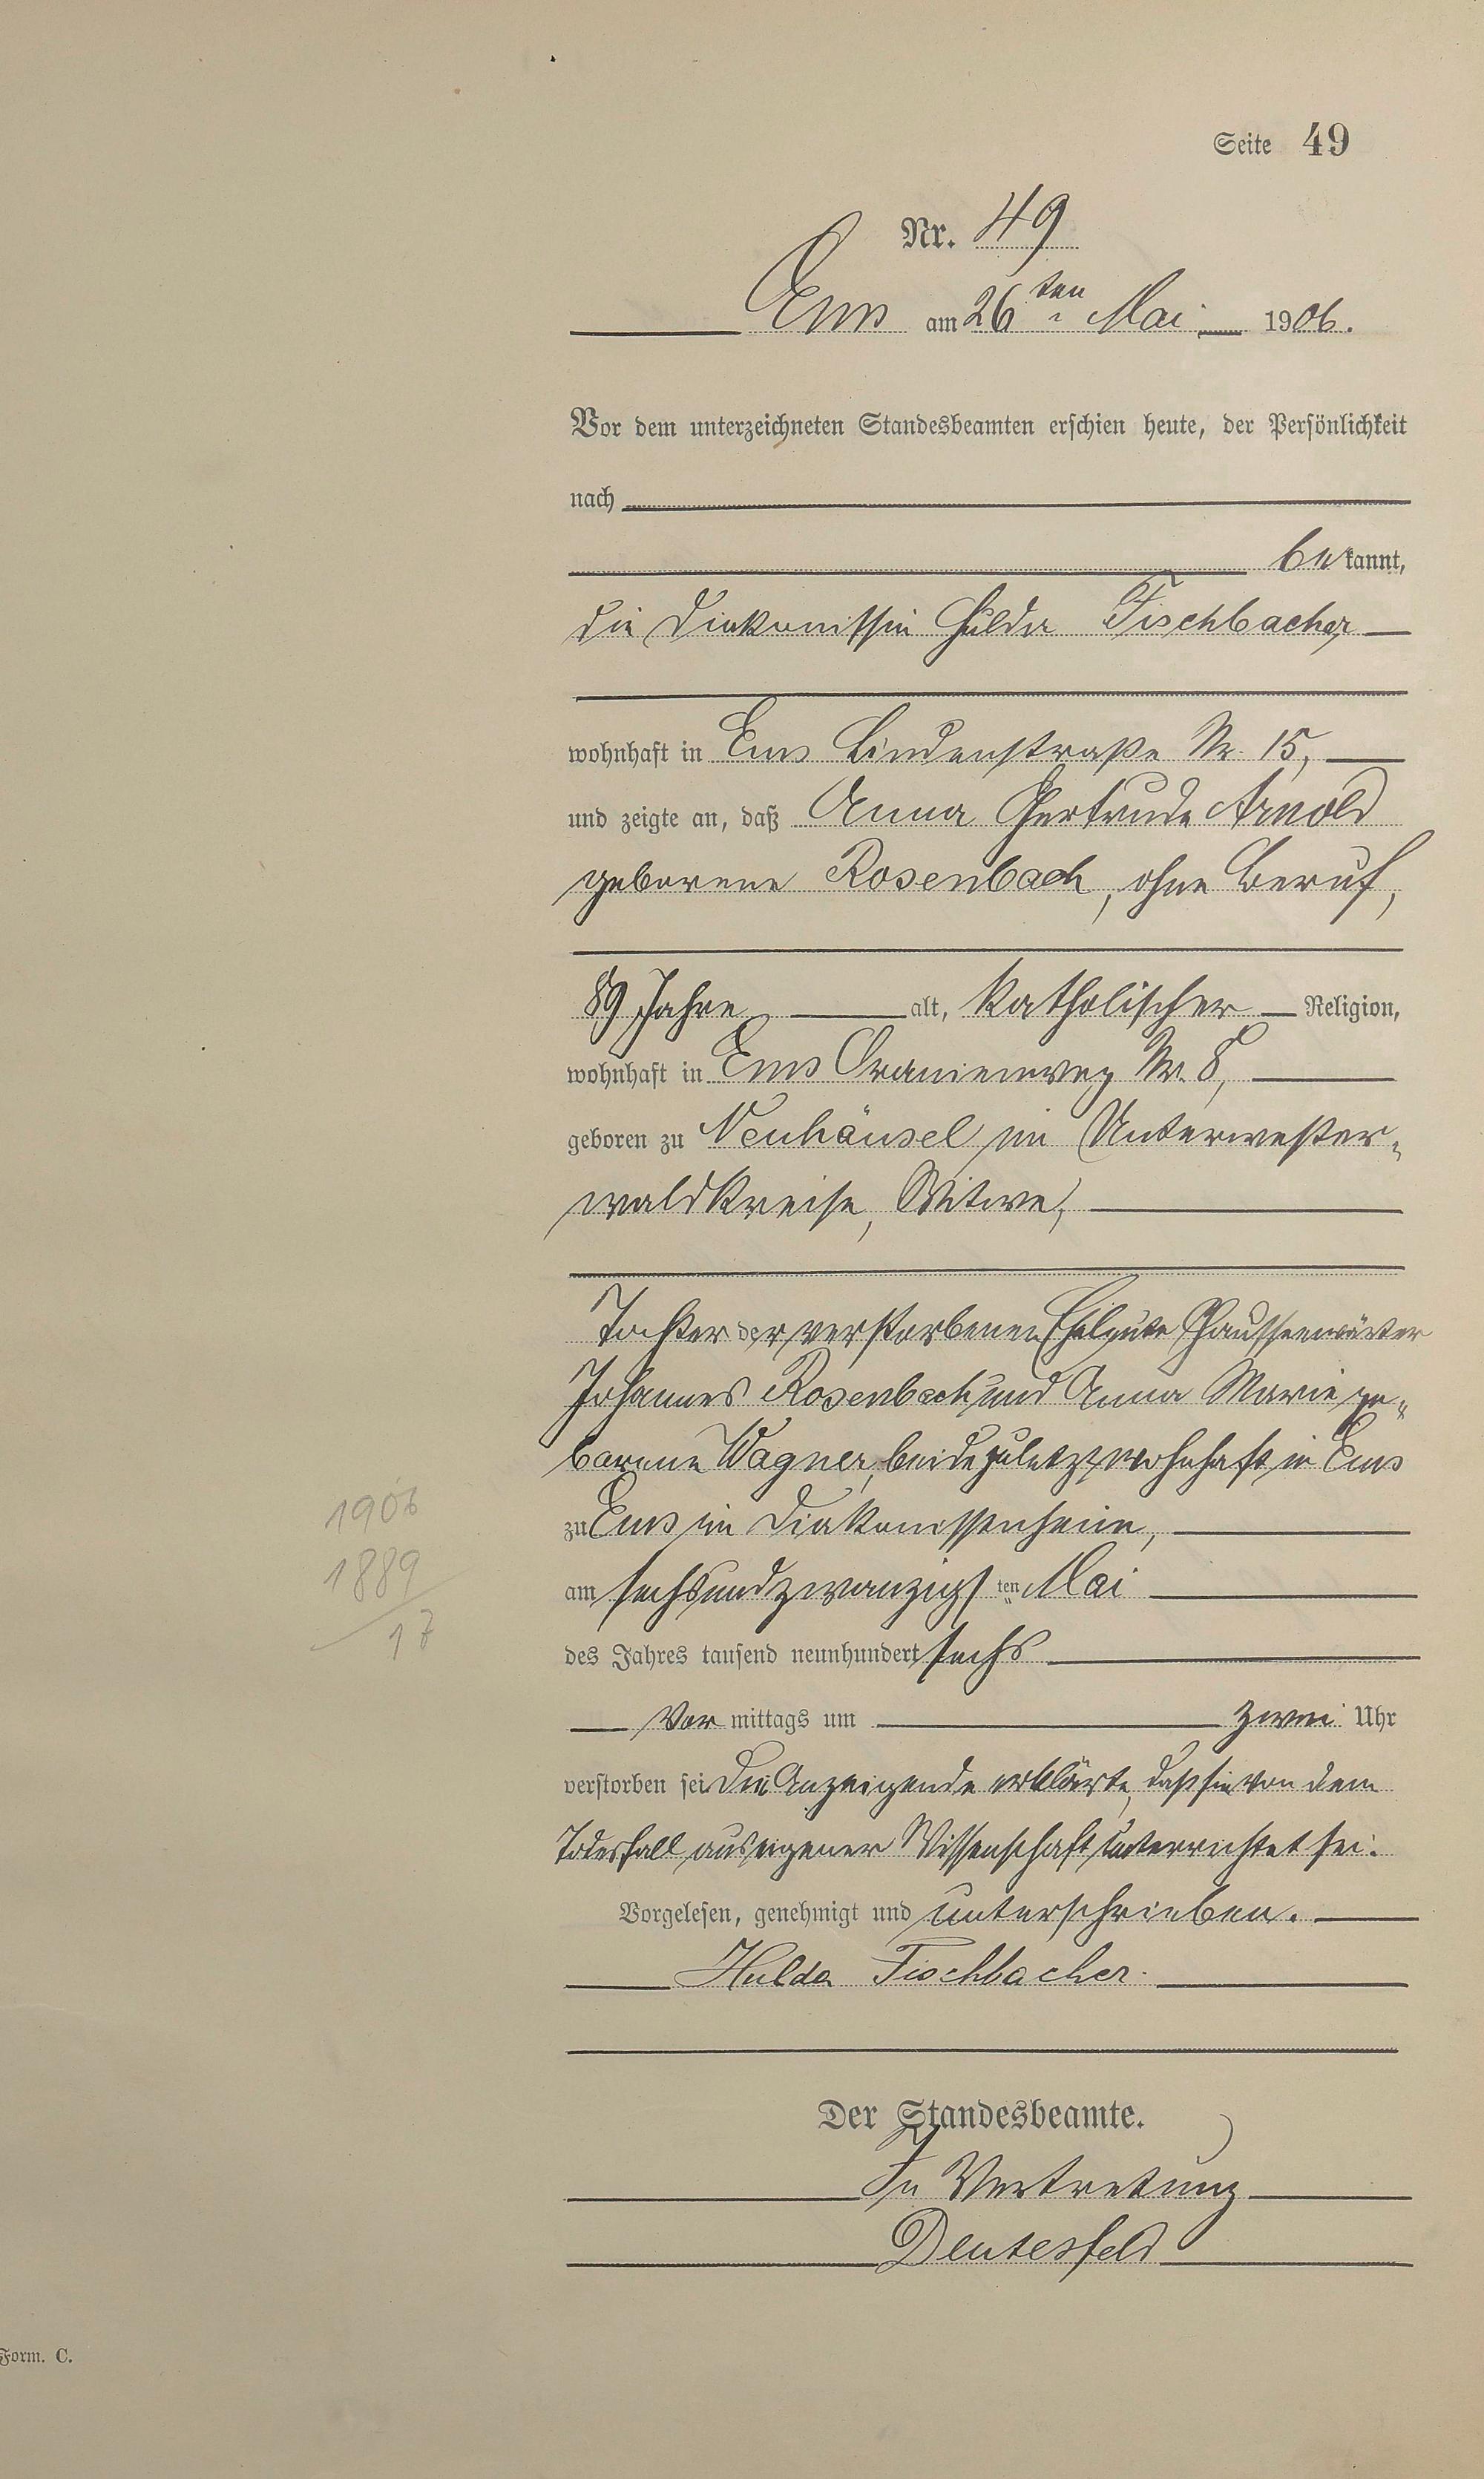 Seite 49
Nr. 49
Ems am 26ten Mai 1906.
Vor dem unterzeichneten Standesbeamten erschien heute, der Persönlichkeit
nach
bekannt,
die Diakonissin Hulda Fischbacher
wohnhaft in Ems Lindenstraße Nr. 15,
und zeigte an, daß Anna Gertrude Arnold
geborene Rosenbach, ohne Beruf,
89 Jahre alt, katholischer Religion,
wohnhaft in Ems Oranienweg Nr. 8,
geboren zu Neuhäusel im Unterwester-
waldkreise, Witwe,
Tochter der verstorbenen Eheleute Chausseewärter
Johannes Rosenbach und Anna Marie ge-
borene Wagner, beide zuletzt wohnhaft in Ems
zu Ems im Diakonissenheim,
am sechsundzwanzigsten Mai
des Jahres tausend neunhundert sechs
Vormittags um zwei Uhr
verstorben sei. Die Anzeigende erklärte, daß sie von dem
Todesfall aus eigener Wissenschaft unterrichtet sei.
Vorgelesen, genehmigt und unterschrieben.
Hulda Fischbacher.
Der Standesbeamte.
In Vertretung
Deutesfeld
1906
1889
17
Form. C.